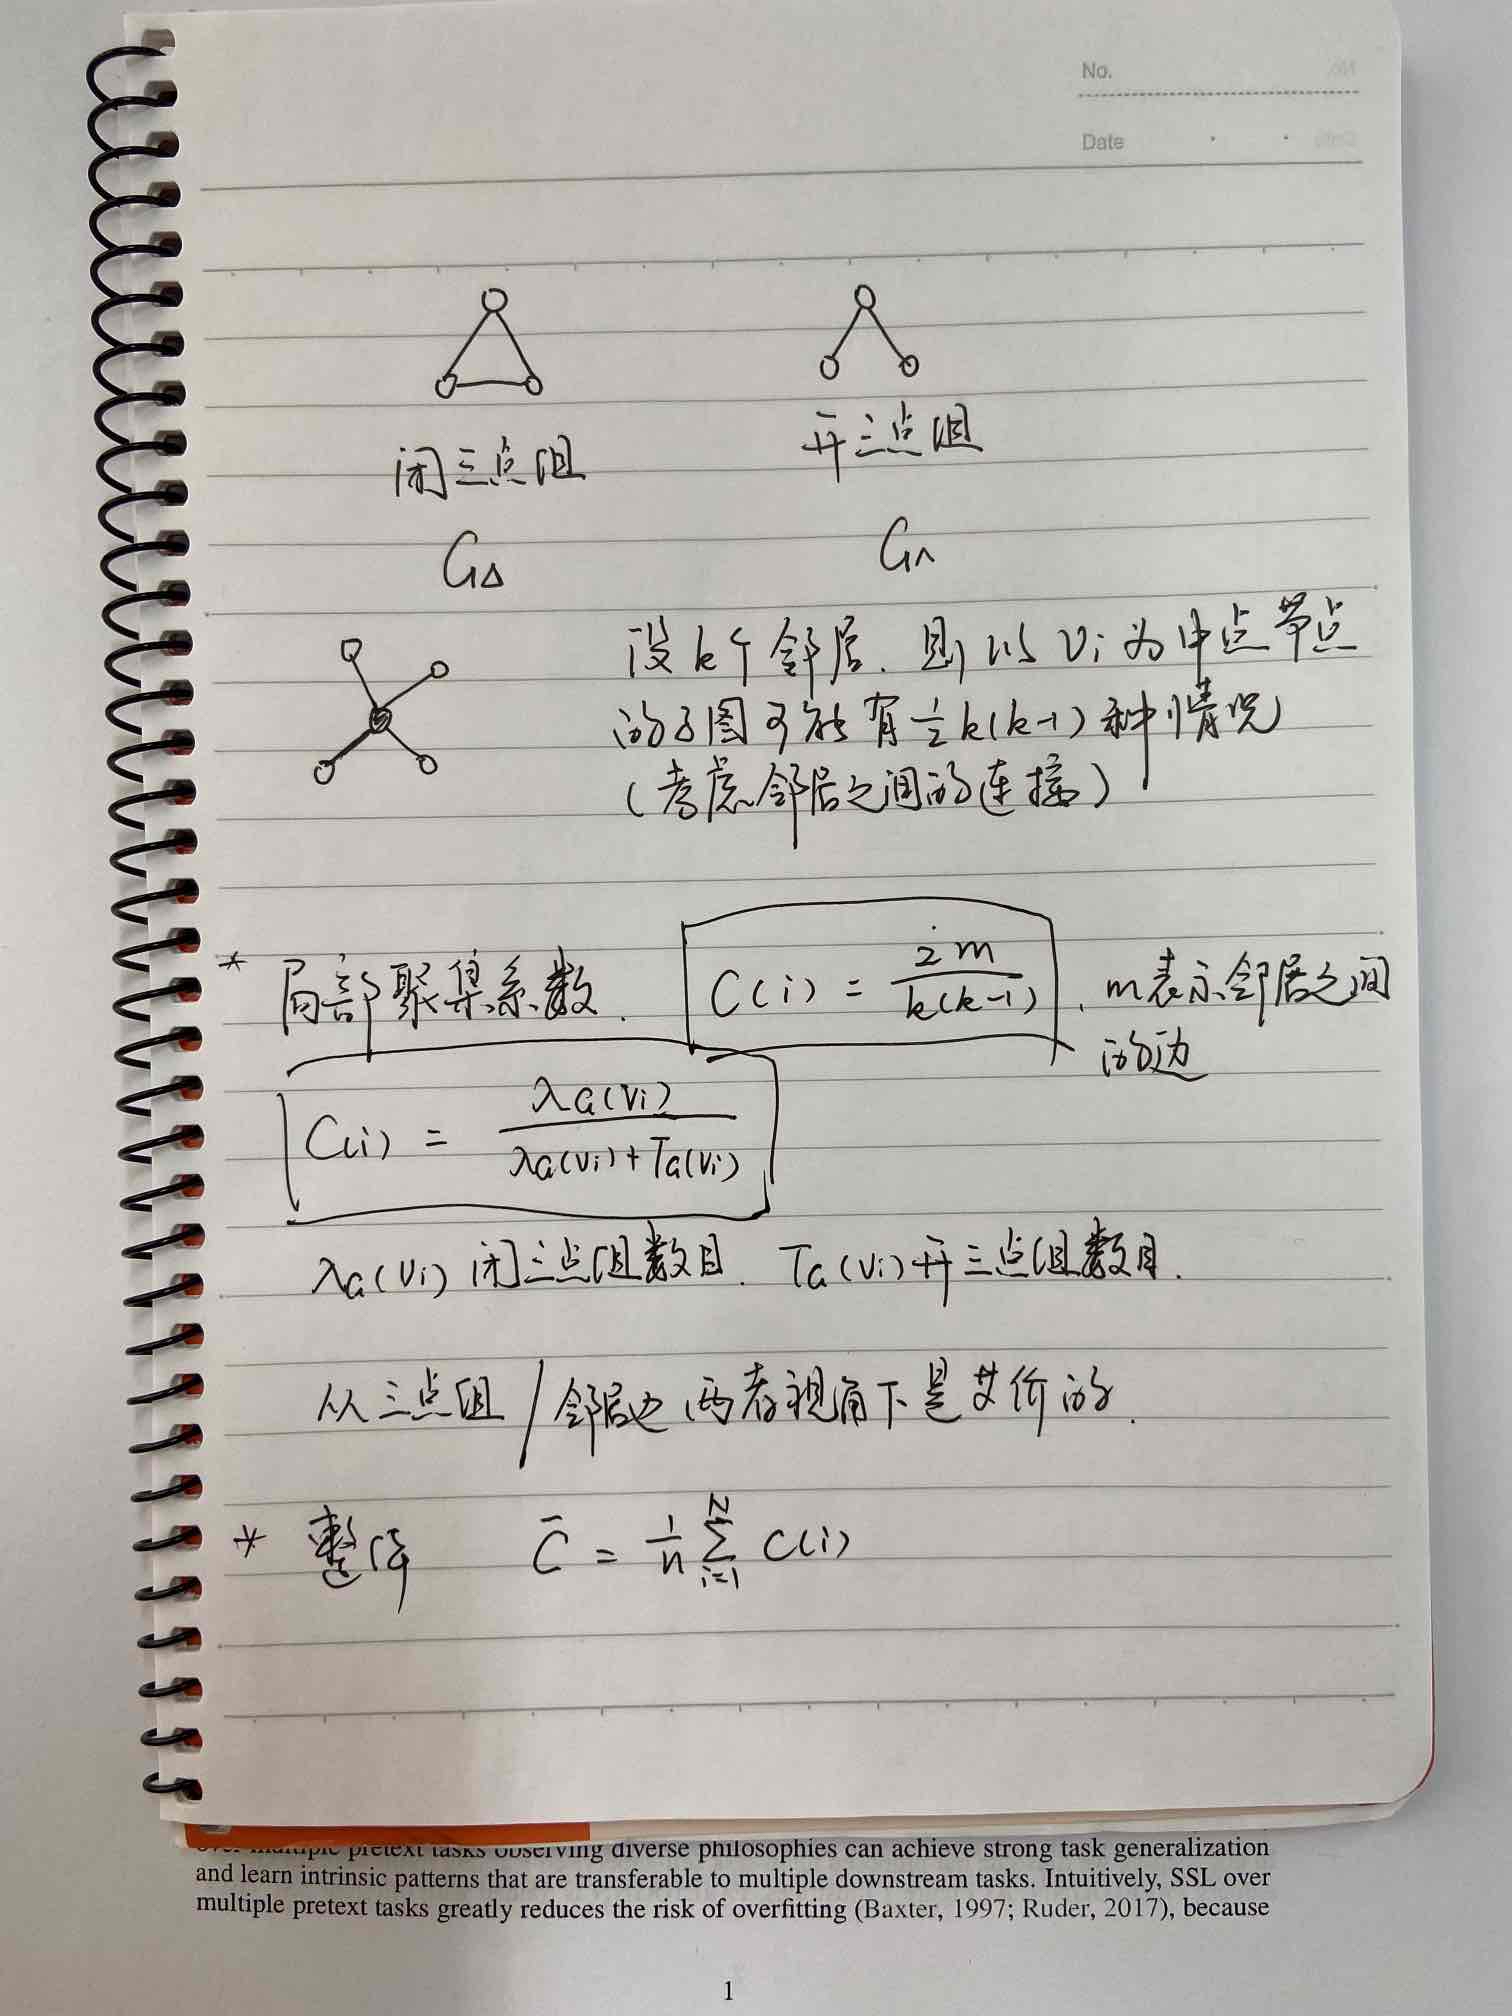 No.
Date
闭三点组
开三点组
G△
G∧
设k个邻居. 则以 Vi 为中点节点
的子图可能有 ½k(k-1) 种情况
(考虑邻居之间的连接)
* 局部聚集系数. C(i) = 2m / k(k-1) . m表示邻居之间
的边
C(i) = λG(Vi) / λG(Vi)+TG(Vi)
λG(Vi) 闭三点组数目. TG(Vi) 开三点组数目.
从三点组 / 邻居边 两者视角下是等价的.
* 整体 C̄ = 1/n ∑ᵢ₌₁ᴺ C(i)
over multiple pretext tasks observing diverse philosophies can achieve strong task generalization
and learn intrinsic patterns that are transferable to multiple downstream tasks. Intuitively, SSL over
multiple pretext tasks greatly reduces the risk of overfitting (Baxter, 1997; Ruder, 2017), because
1